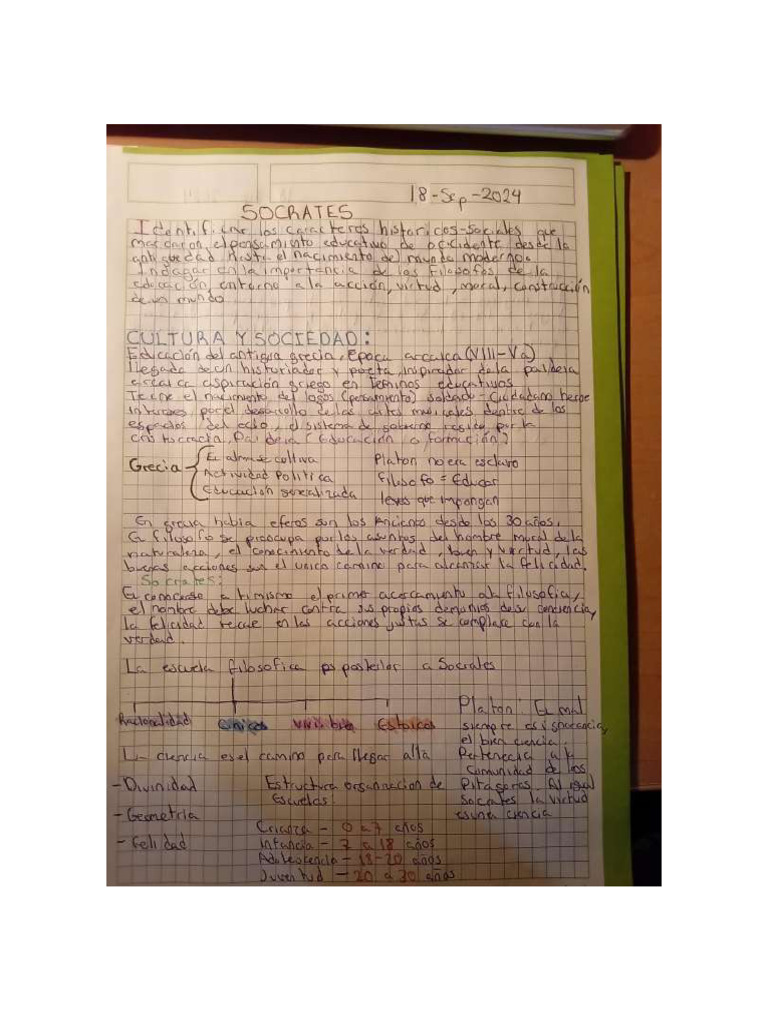 18-Sep-2024
SOCRATES
Identificar los caracteros historicos-sociales que
marcaron, el pensamiento educativo de occidente desde la
antiguedad Hasta el nacimiento del mundo moderno.
Indagar en la importancia de los filosofos de la
educación, entorno a la acción, virtud, moral, construcción
de un mundo
CULTURA Y SOCIEDAD:
Educación del antigua grecia, Epoca arcaica (VIII-Va)
llegada de un historiador y poeta, inspirador de la paideia
aspiración griego en terminos educativos
el nacimiento del logos (pensamiento) soldado-Ciudadano heroe
interes por el desarrollo de las artes musicales dentro de los
espacios del , el sistema de gobierno reside por la
Paideia (Educación o formación)
Grecia
El alma se cultiva
Actividad Politica
Educación generalizada
Platon no era esclavo
Filosofo = Educar
leyes que impongan
En grecia habia eforos son los Ancianos desde los 30 años.
El filosofo se preocupa por los asuntos del hombre moral de la
naturaleza, el conocimiento de la verdad, bien y virtud, las
buenas acciones son el unico camino para alcanzar la felicidad.
Socrates:
El conocerse a ti mismo el primer acercamiento a la filosofia,
el hombre debe luchar contra sus propios demonios de su conciencia,
la felicidad recae en las acciones justas se complace con la
verdad.
La escuela filosofica es posterior a Socrates
Racionalidad Cinicos Estoicos
Platon: El mal
siempre es ignorancia,
el bien ciencia.
Pertenecia a la
Comunidad de los
Pitagoras. Al igual
Socrates la virtud
es una ciencia
La ciencia es el camino para llegar allá
- Divinidad
- Geometria
- Felidad
Estructura organizacion de
Escuelas:
Crianza - 0 a 7 años
Infancia - 7 a 18 años
Adolescencia - 18-20 años
Juventud - 20 a 30 años